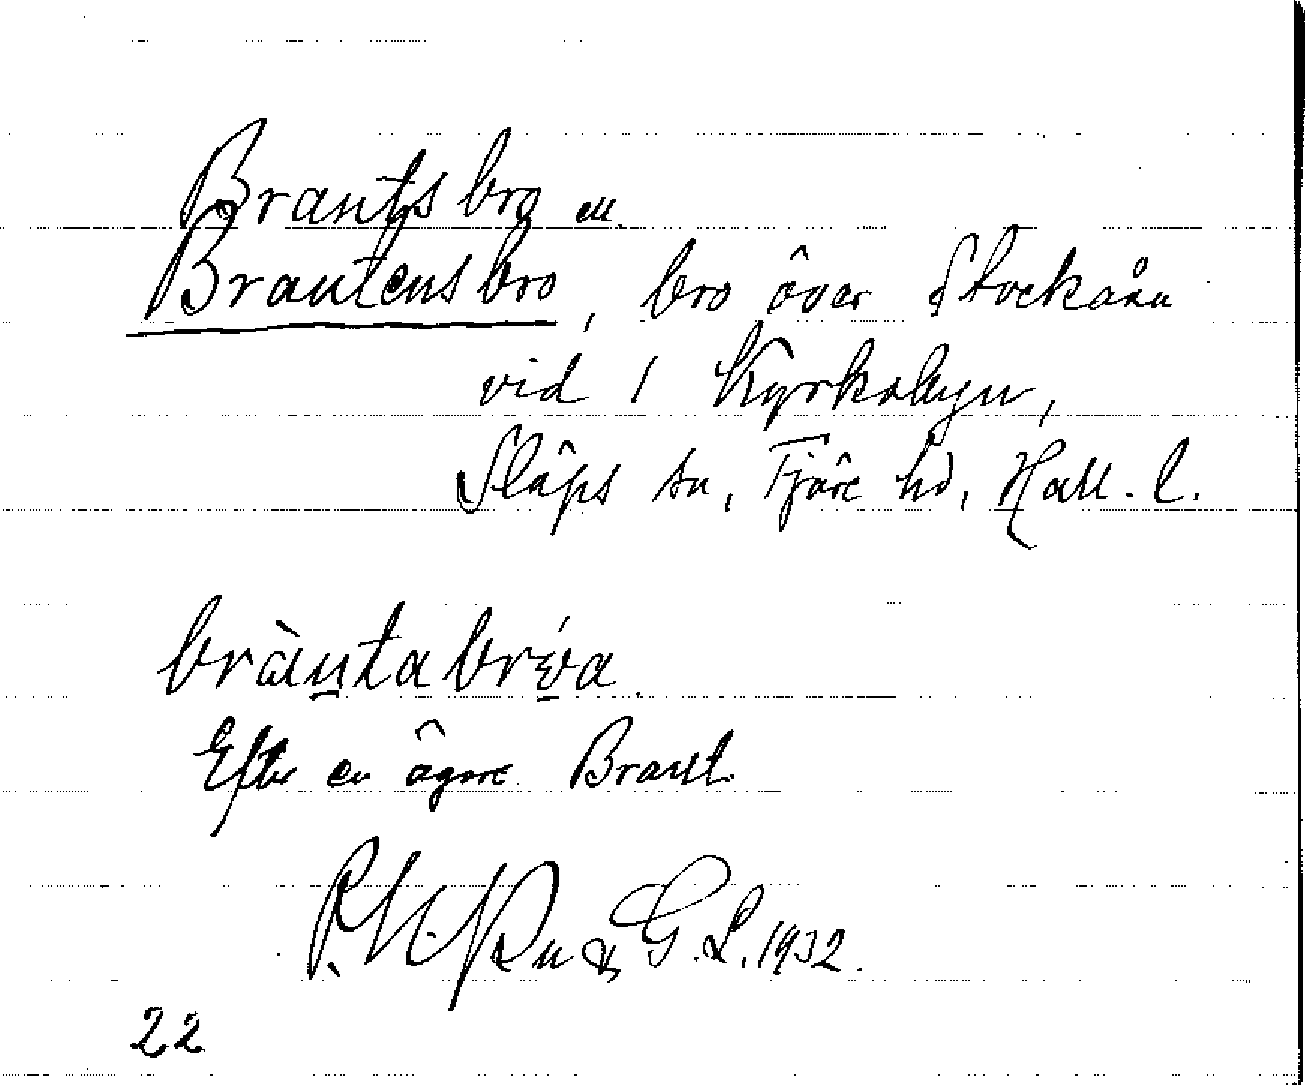 Brants bro ell.
Brantens bro, bro över Stockån
vid 1 Kyrkobyn,
Släps sn, Fjäre hd, Hall. l.
bràntabróa
Efter en ägare Brant
& G. L. 1932.
22